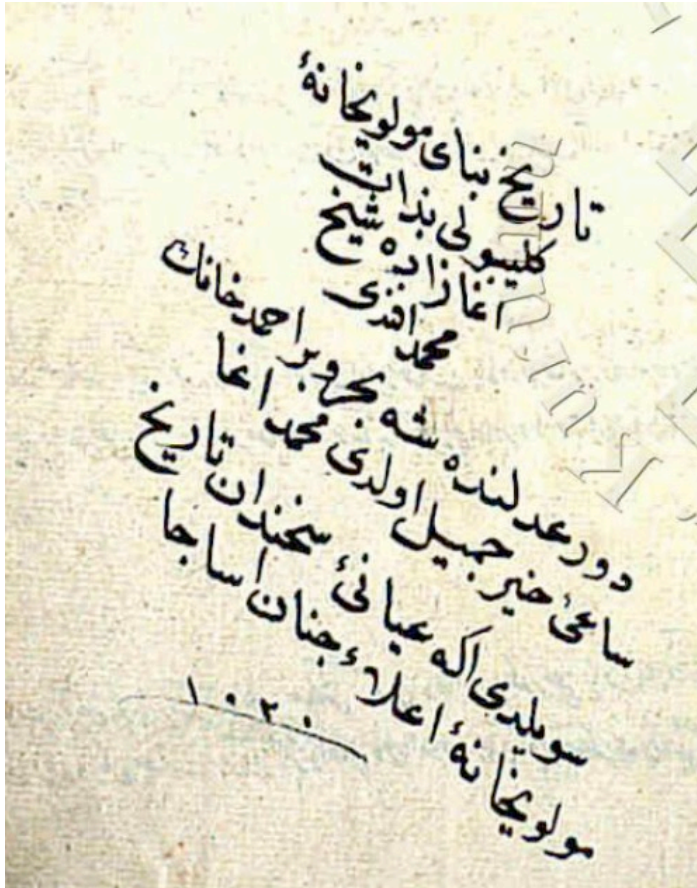 تاريخ بناى مولويخانهٔ
كليبولى بذات
اغا زاده شيخ
محمد افندى
دور عدلنده شه بحر وبر احمد خانك
ساعئ خير جميل اولدى محمد اغا
سويلدى اكه عيانئ سخندان تاريخ
مولويخانهٔ اعلاء جنان اسا جا
١٠٣٠